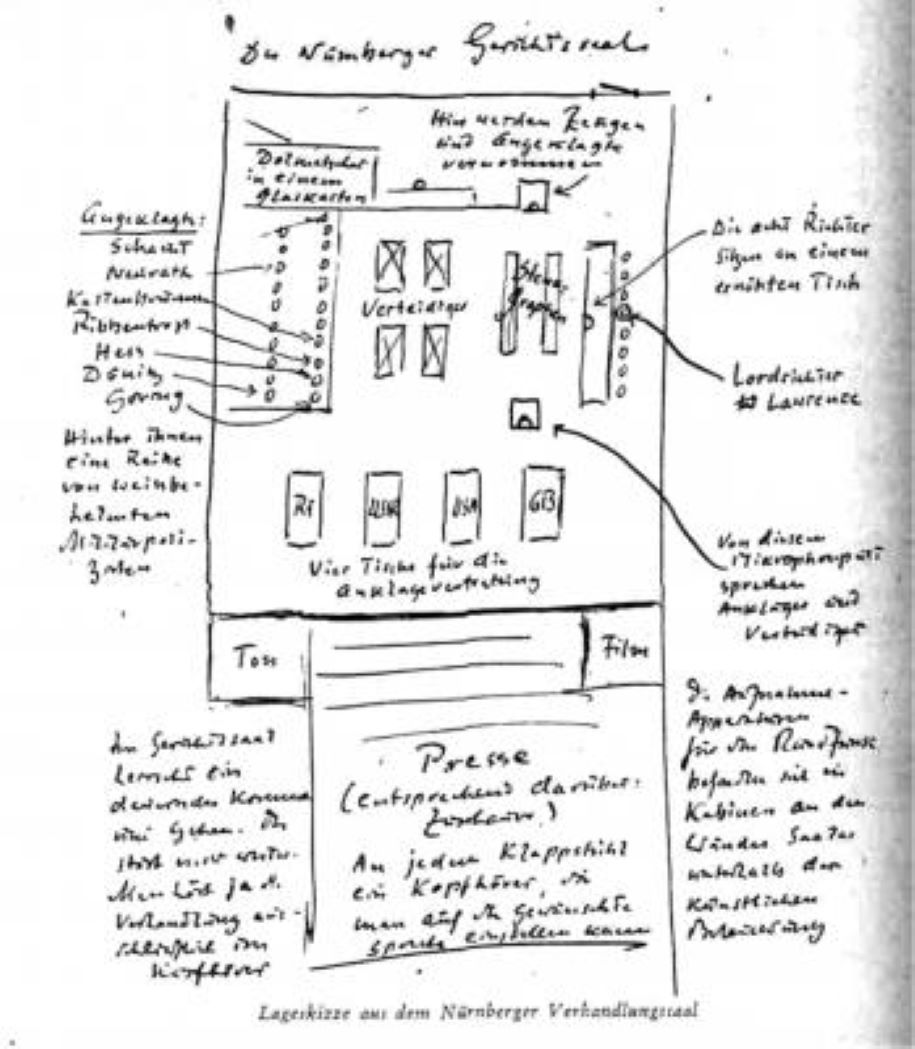 Der Nürnberger Gerichtssaal
Hier werden Zeugen
und Angeklagte
vernommen
Dolmetscher
in einem
Glaskasten
Angeklagte:
Schacht
Neurath
Kaltenbrunner
Ribbentrop
Hess
Dönitz
Göring
Hinter ihnen
eine Reihe
von weissbe-
helmten
Militärpoli-
zisten
Verteidiger
Steno-
graphen
Die acht Richter
sitzen an einem
erhöhten Tisch
Lordrichter
Lawrence
RF
USSR
USA
GB
Vier Tische für die
Anklagevertretung
Von diesem
Mikrophonpult
sprechen
Ankläger und
Verteidiger
Ton
Film
Im Gerichtssaal
herrscht ein
dauerndes Kommen
und Gehen. Es
stört nicht weiter.
Man hört ja d.
Verhandlung aus-
schließlich im
Kopfhörer
Presse
(entsprechend darüber:
Zuschauer)
An jedem Klappstuhl
ein Kopfhörer, den
man auf die gewünschte
Sprache einstellen kann
D. Aufnahme-
Apparaturen
für den Rundfunk
befinden sich in
Kabinen an den
Wänden
unterhalb der
künstlichen
Beleuchtung
Lageskizze aus dem Nürnberger Verhandlungssaal